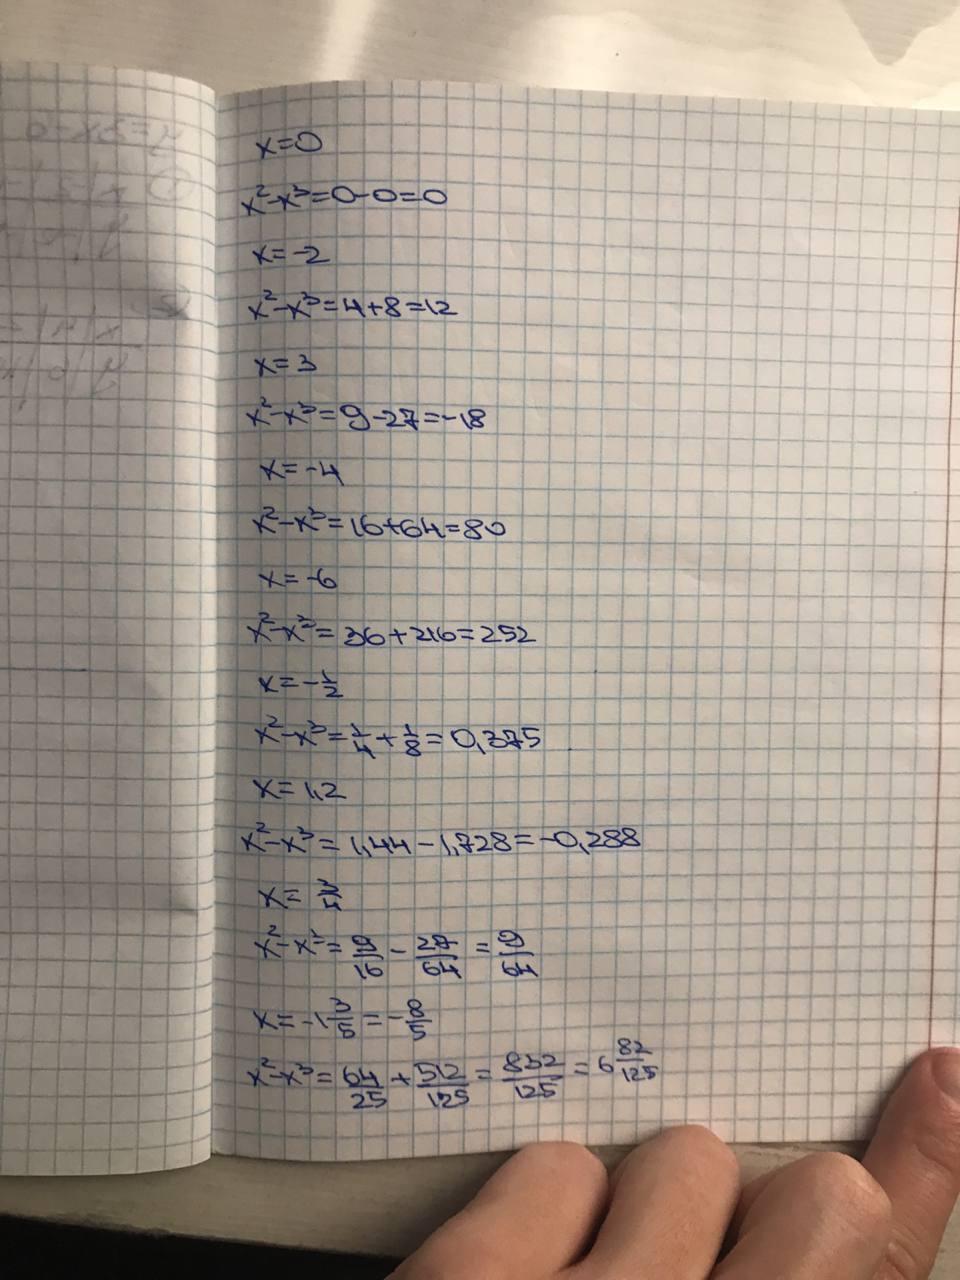 x=0
x²-x³=0-0=0
x=-2
x²-x³=4+8=12
x=3
x²-x³=9-27=-18
x=-4
x²-x³=16+64=80
x=-6
x²-x³=36+216=252
x=-1/2
x²-x³=1/4+1/8=0,375
x=1,2
x²-x³=1,44-1,728=-0,288
x=3/4
x²-x³=9/16-27/64=9/64
x=-1 3/5=-8/5
x²-x³=64/25+512/125=832/125=6 82/125